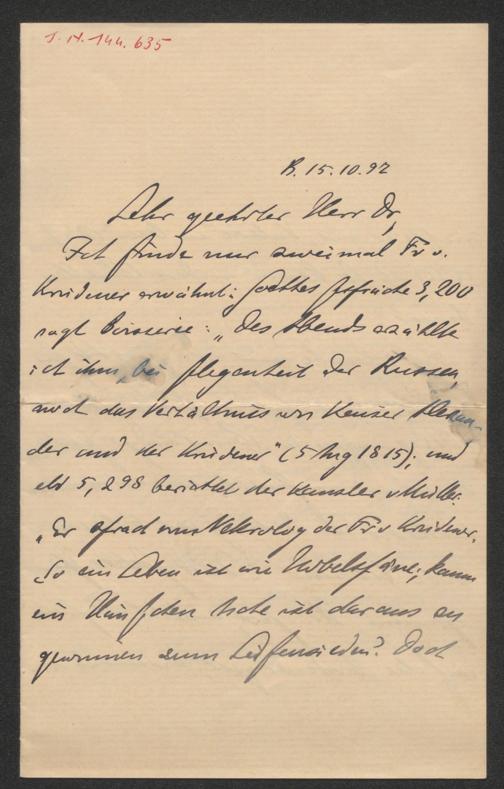 J. N. 144.635
B. 15.10.92
Sehr geehrter Herr Dr,
Ich finde nur zweimal Fr v.
Krüdener erwähnt: Goethes Gespräche 3, 200
sagt Boisserée: „Des Abends erzählte
ich ihm, bei Gelegenheit der Russen,
noch das Verhältniss von Kaiser Alexan-
der und der Krüdener" (5 Aug 1815); und
ebd 5, 298 berichtet der Kanzler v Müller:
„Er sprach vom Nekrolog der Fr v Krüdener.
So ein Leben ist wie Hobelspäne; kaum
ein Häufchen Asche ist daraus zu
gewinnen zum Seifensieden". Doch